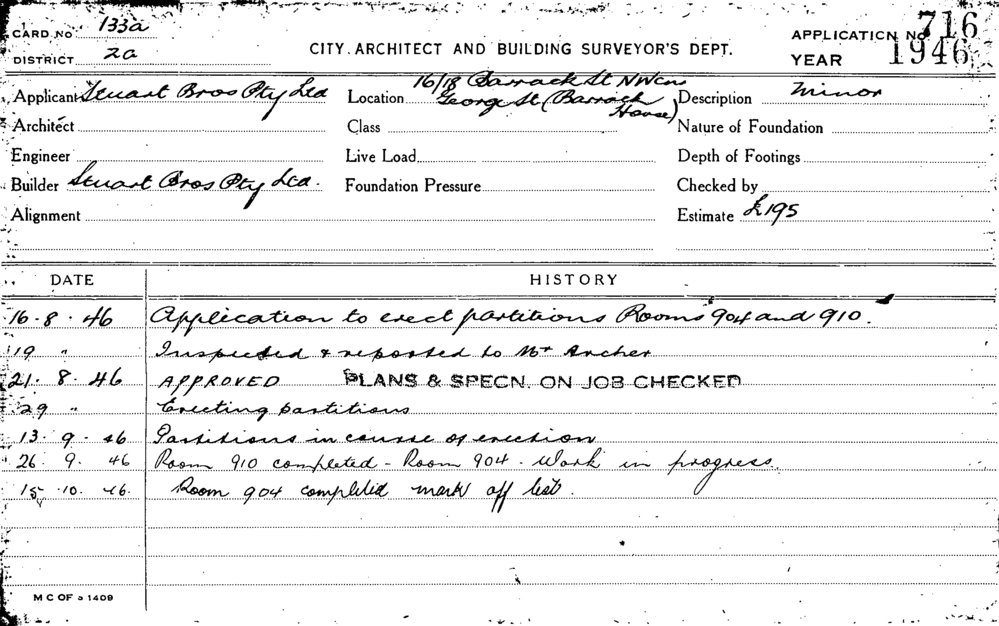 CARD No. 133a
DISTRICT 2a
CITY ARCHITECT AND BUILDING SURVEYOR'S DEPT.
APPLICATION No 716
YEAR 1946
Applicant Stuart Bros Pty Ltd
Location 16/18 Barrack St NWcnr
George St (Barrack
House)
Description Minor
Architect
Class
Nature of Foundation
Engineer
Live Load
Depth of Footings
Builder Stuart Bros Pty Ltd.
Foundation Pressure
Checked by
Alignment
Estimate £195
DATE HISTORY
16·8·46 Application to erect partitions Rooms 904 and 910.
19 " Inspected & reported to Mr Archer
21·8·46 APPROVED PLANS & SPECN. ON JOB CHECKED
29 " Erecting partitions
13·9·46 Partitions in course of erection
26·9·46 Room 910 completed - Room 904. Work in progress
15·10·46. Room 904 completed mark off list.
M C OF S 1409